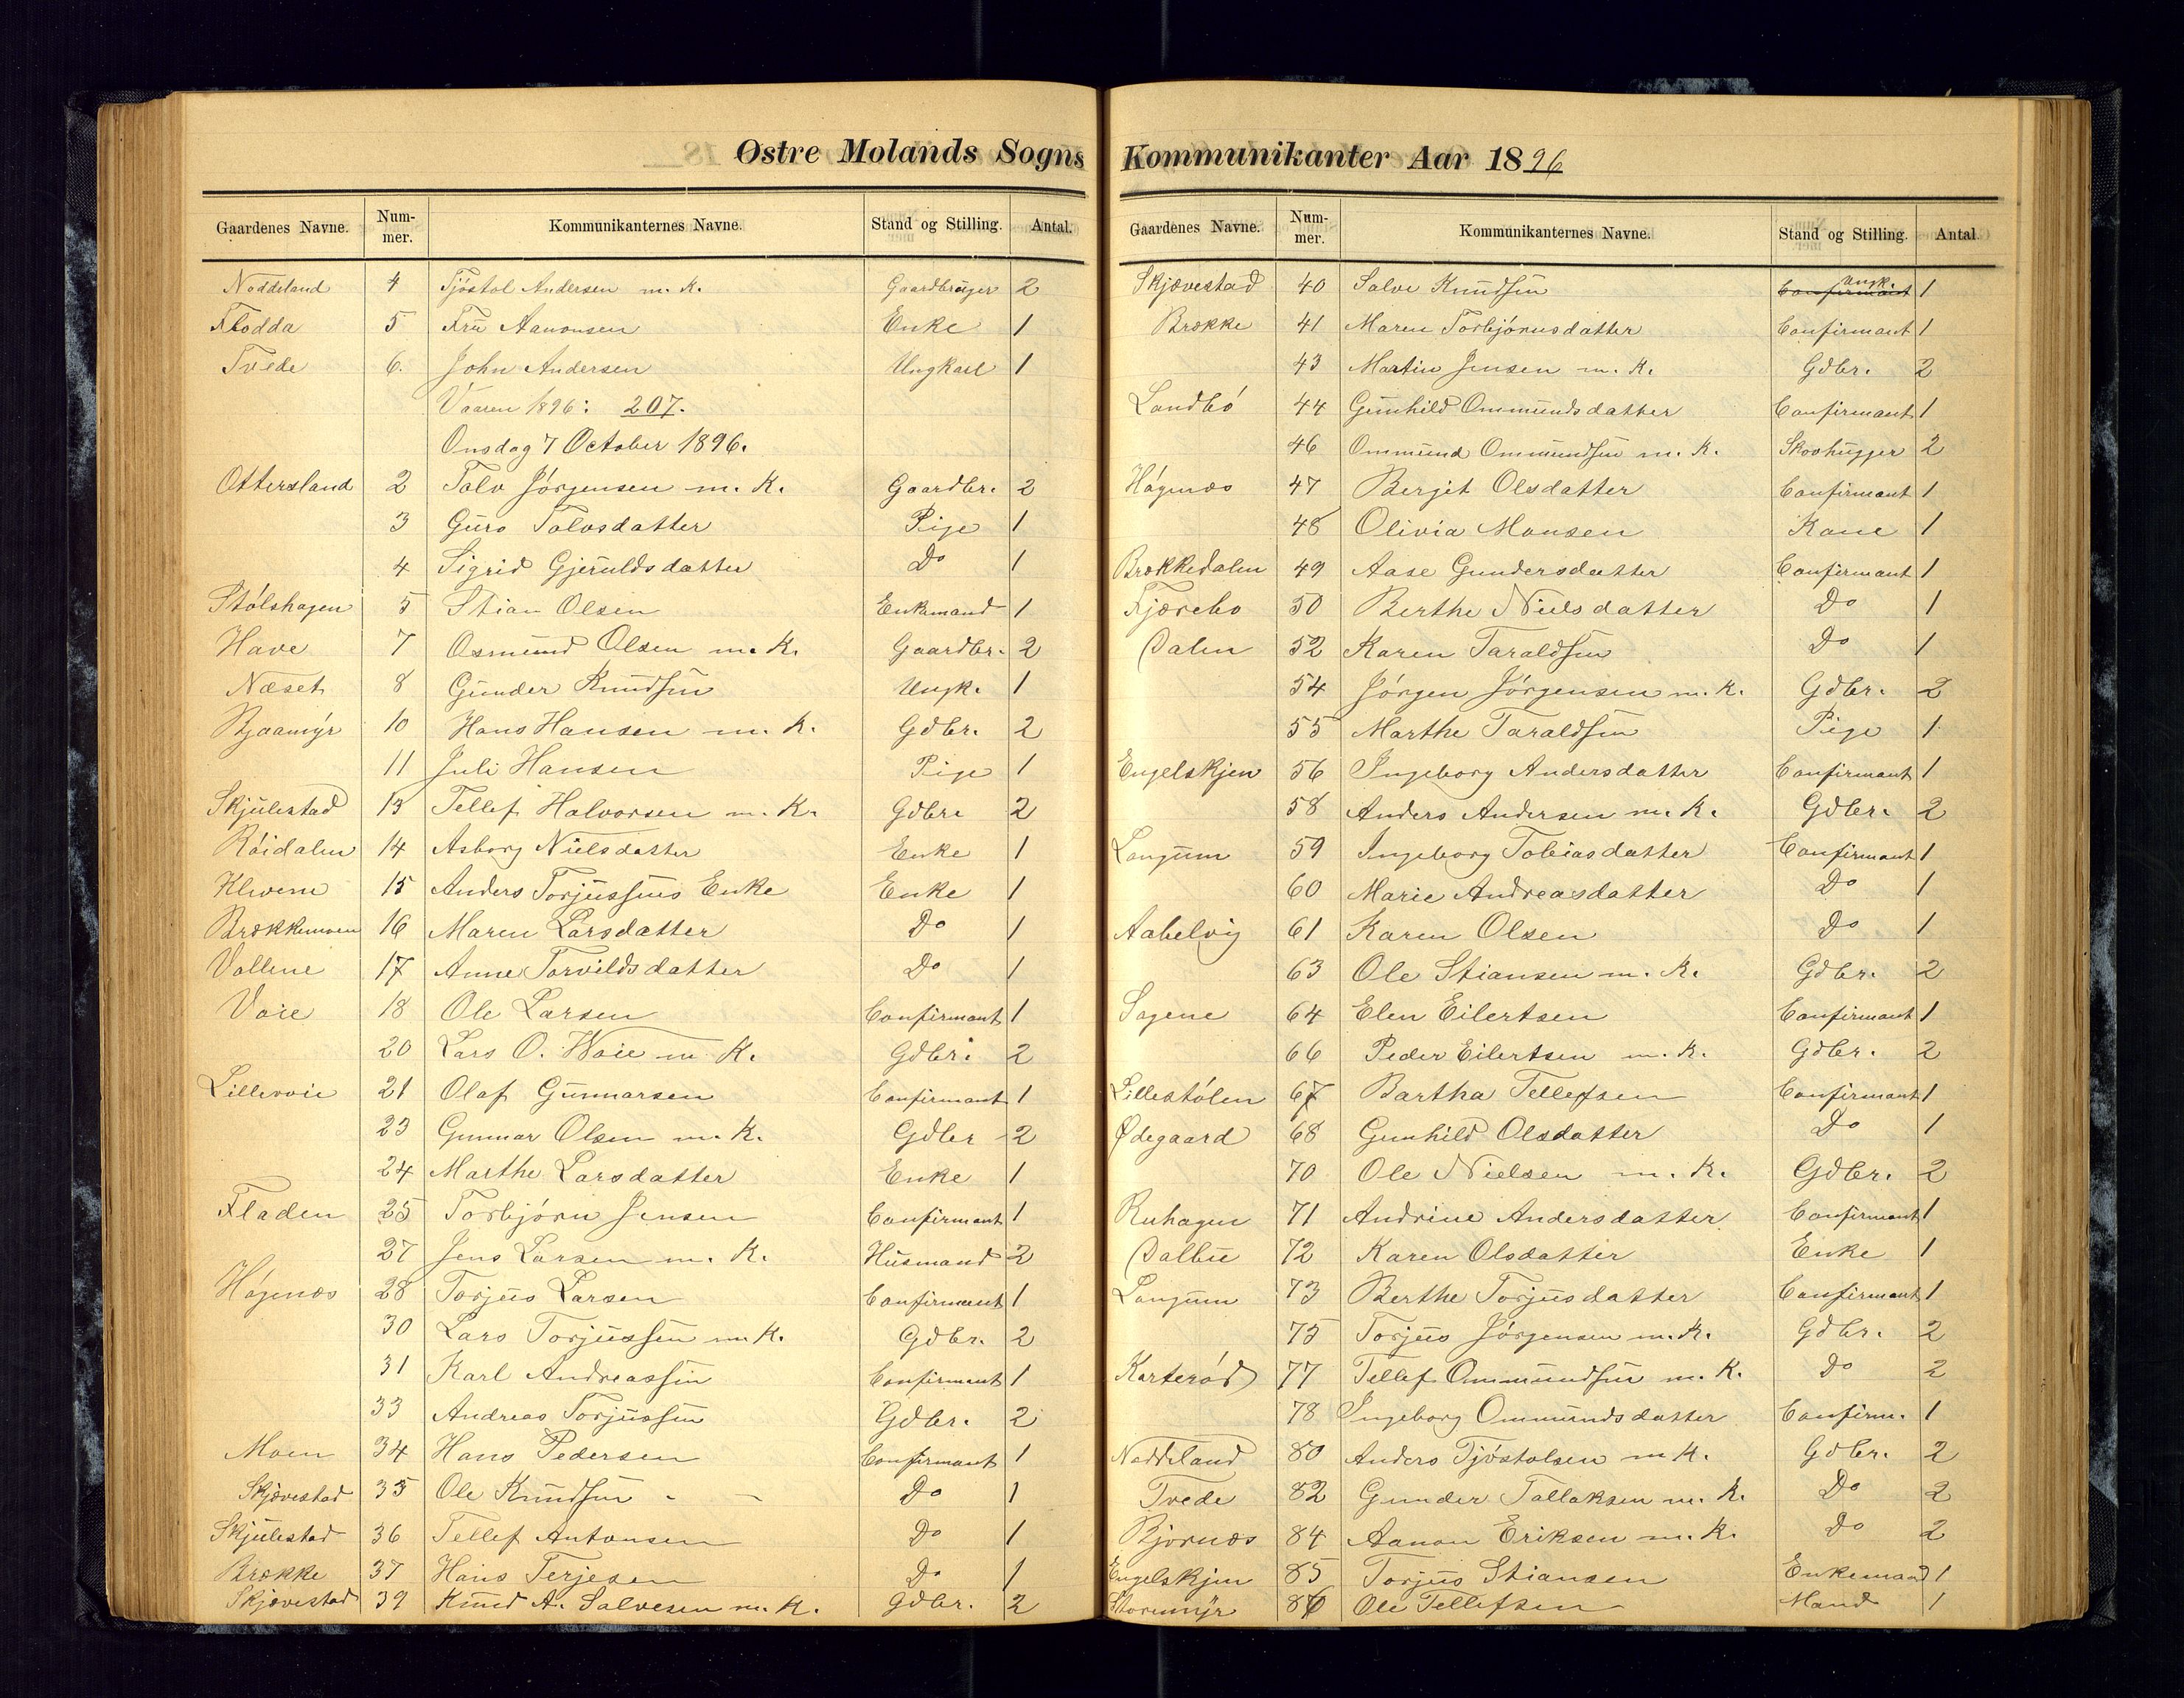 Østre Molands Sogns
Gaardenes Navne. Num-mer. Kommunikanternes Navne. Stand og Stilling. Antal.
Noddeland 4 Tjöstol Andersen m. K. Gaardbruger 2
Flodda 5 Fru Aanonsen Enke 1
Tvede 6. John Andersen Ungkarl 1
Vaaren 1896: 207.
Onsdag 7 October 1896.
Ottersland 2 Talv Jörgensen m. K. Gaardbr. 2
3 Guro Talvsdatter Pige 1
4 Sigrid Gjeruldsdatter Do 1
Stölshagen 5 Stian Olsen Enkemand 1
Have 7 Osmund Olsen m. K. Gaardbr. 2
Næset 8 Gunder Knudsen Ungk. 1
Bjaamyr 10 Hans Hansen m. K. Gdbr. 2
11 Juli Hansen Pige 1
Skjulestad 13 Tellef Halvorsen m. K. Gdbr. 2
Röidalen 14 Asborg Nielsdatter Enke 1
15 Anders Torjussens Enke Enke 1
Brækkemoen 16 Maren Larsdatter Do 1
Vollene 17 Anne Torvildsdatter Do 1
Voie 18 Ole Larsen Confirmant 1
20 Lars O. Woie m. K. Gdbr. 2
Lillevoie 21 Olaf Gunnarsen Confirmant 1
23 Gunnar Olsen m. K. Gdbr 2
24 Marthe Larsdatter Enke 1
Fladen 25 Torbjörn Jensen Confirmant 1
27 Jens Larsen m. K. Husmand 2
Högenæs 28 Torjus Larsen Confirmant 1
30 Lars Torjussen m. K. Gdbr. 2
31 Karl Andreassen Confirmant 1
33 Andreas Torjussen Gdbr. 2
Moen 34 Hans Pedersen Confirmant 1
Skjævestad 35 Ole Knudsen - - Do 1
Skjulestad 36 Tellef Antonsen Do 1
Brække 37 Hans Terjesen Do 1
Skjævestad 39 Knud A. Salvesen m. K. Gdbr. 2
Kommunikanter Aar 1896
Gaardenes Navne. Num-mer. Kommunikanternes Navne. Stand og Stilling. Antal
Skjævestad 40 Salve Knudsen Confirmant Ungk. 1
Brække 41 Maren Torbjörnsdatter Confirmant 1
43 Martin Jensen m. K. Gdbr. 2
Landbö 44 Gunhild Ommundsdatter Confirmant 1
46 Ommund Ommundsen m. K. Skovhugger 2
Högenæs 47 Bergit Olsdatter Confirmant 1
48 Olivia Monsen Kone 1
Brækkedalen 49 Aase Gundersdatter Confirmant 1
Fjærebo 50 Berthe Nielsdatter Do 1
Dalen 52 Karen Taraldsen Do 1
54 Jörgen Jörgensen m. K. Gdbr. 2
55 Marthe Taraldsen Pige 1
Engelskjen 56 Ingeborg Andersdatter Confirmant 1
58 Anders Andersen m. K. Gdbr. 2
Langum 59 Ingeborg Tobiasdatter Confirmant 1
60 Marie Andreasdatter Do 1
Aabelvig 61 Karen Olsen Do 1
63 Ole Stiansen m. K. Gdbr. 2
Sagene 64 Elen Eilertsen Confirmant 1
66 Peder Eilertsen m. K. Gdbr. 2
Lillestölen 67 Bartha Tellefsen Confirmant 1
Ødegaard 68 Gunhild Olsdatter Do 1
70 Ole Nielsen m. K. Gdbr. 2
Ruhagen 71 Andrine Andersdatter Confirmant 1
Dalbu 72 Karen Olsdatter Enke 1
Langum 73 Berthe Torjusdatter Confirmant 1
75 Torjus Jörgensen m. K. Gdbr. 2
Karteröd 77 Tellef Ommundsen m. K. Do 2
78 Ingeborg Ommundsdatter Confirm. 1
Noddeland 80 Anders Tjöstolsen m K. Gdbr. 2
Tvede 82 Gunder Tallaksen m. K. Do 2
Bjornæs 84 Aanon Eriksen m. K. Do 2
Engelskjen 85 Torjus Stiansen Enkemand 1
Stormyr 86 Ole Tellefsen Mand 1